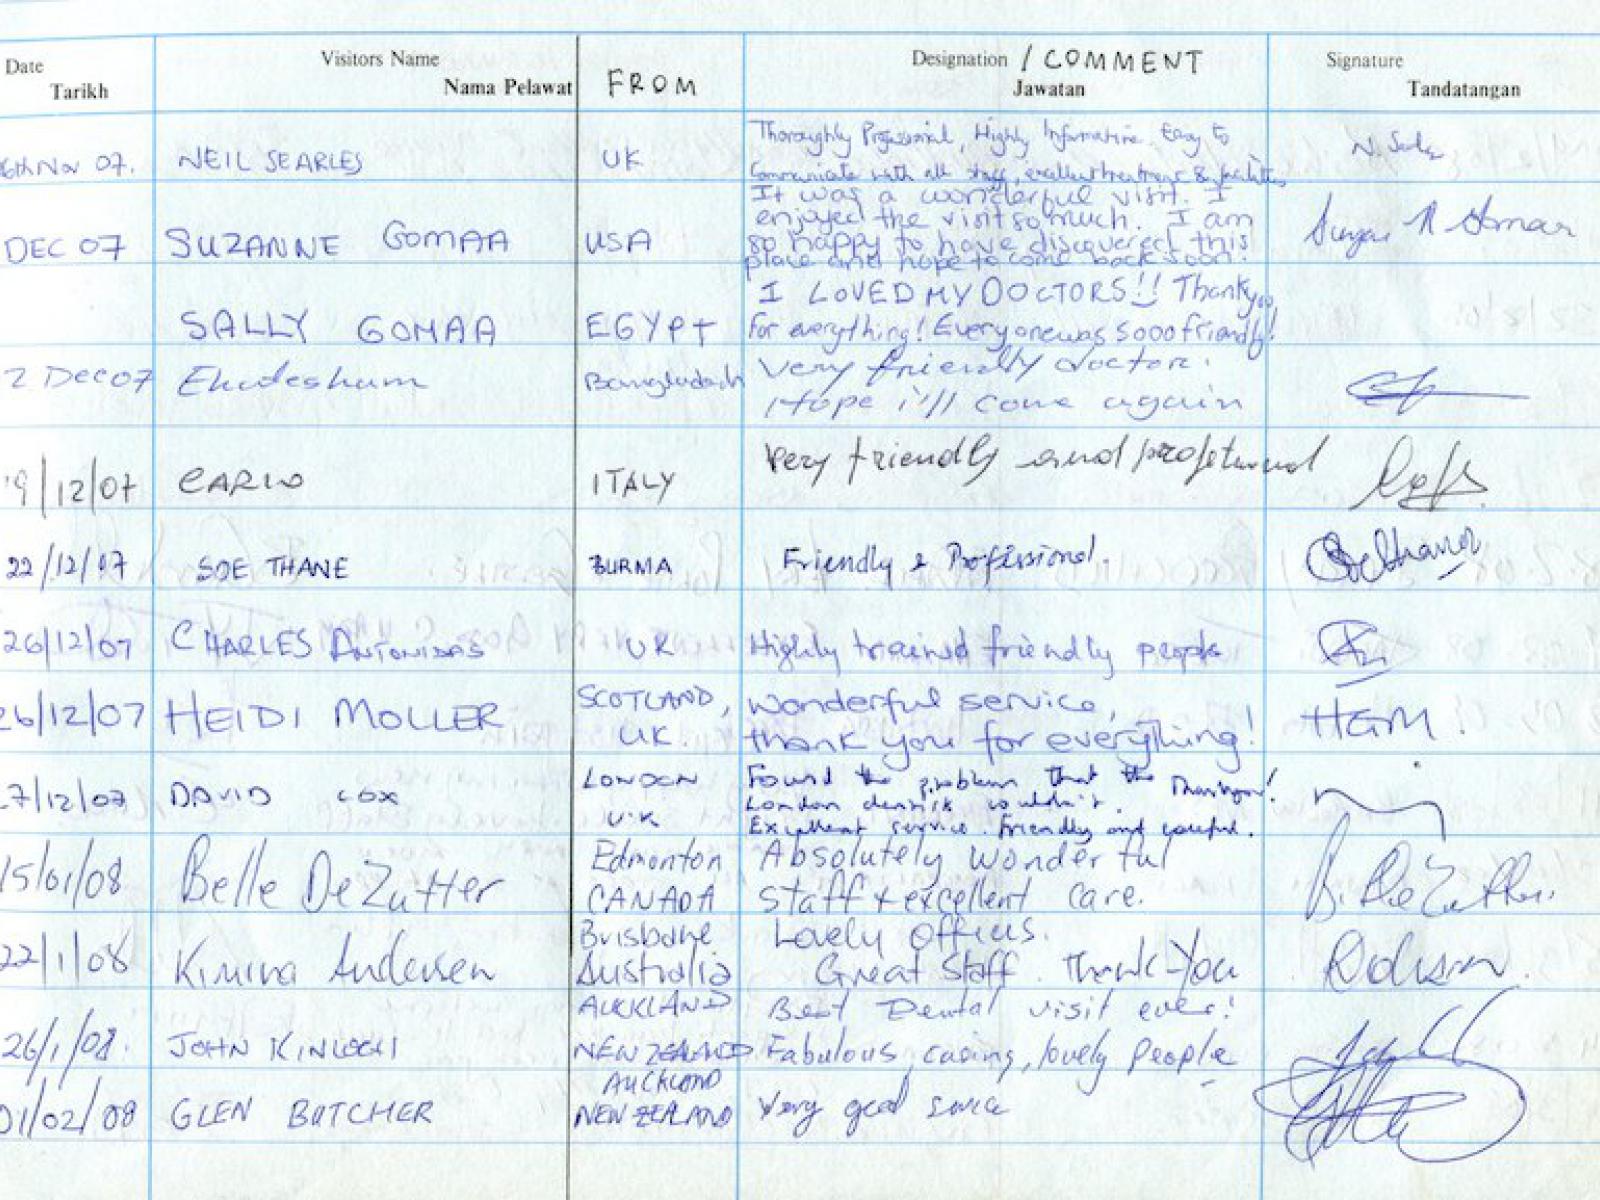 Date Visitors Name Designation / COMMENT Signature
Tarikh Nama Pelawat FROM Jawatan Tandatangan
6th Nov 07. NEIL SEARLES UK Thoroughly Professional, Highly Informative. Easy to
Communicate with all staff, excellent treatment & facilities
DEC 07 SUZANNE GOMAA USA It was a wonderful visit. I
enjoyed the visit so much. I am
so happy to have discovered this
place and hope to come back soon.
SALLY GOMAA EGYPT I LOVED MY DOCTORS!! Thank you
for everything! Everyone was sooo friendly!
2 Dec 07 Bangladesh Very friendly doctor.
Hope i'll come again
9/12/07 CARLO ITALY Very friendly and
22/12/07 SOE THANE BURMA Friendly & Proffissional.
26/12/07 CHARLES UK Highly trained friendly people
26/12/07 HEIDI MOLLER SCOTLAND, UK. Wonderful service,
thank you for everything! HGM.
27/12/07 DAVID COX LONDON U.K Found the problem that the
London dentist couldn't.
Excellent service. Friendly and careful.
15/01/08 Belle DeZutter Edmonton CANADA Absolutely wonderful
staff + excellent care.
22/1/08 Andersen Brisbane Australia Lovely offices.
Great Staff. Thank-You
26/1/08. JOHN KINLOCH AUCKLAND NEW ZEALAND Best Dental visit ever!
Fabulous, caring, lovely people
01/02/08 GLEN BUTCHER AUCKLAND NEW ZEALAND Very good service